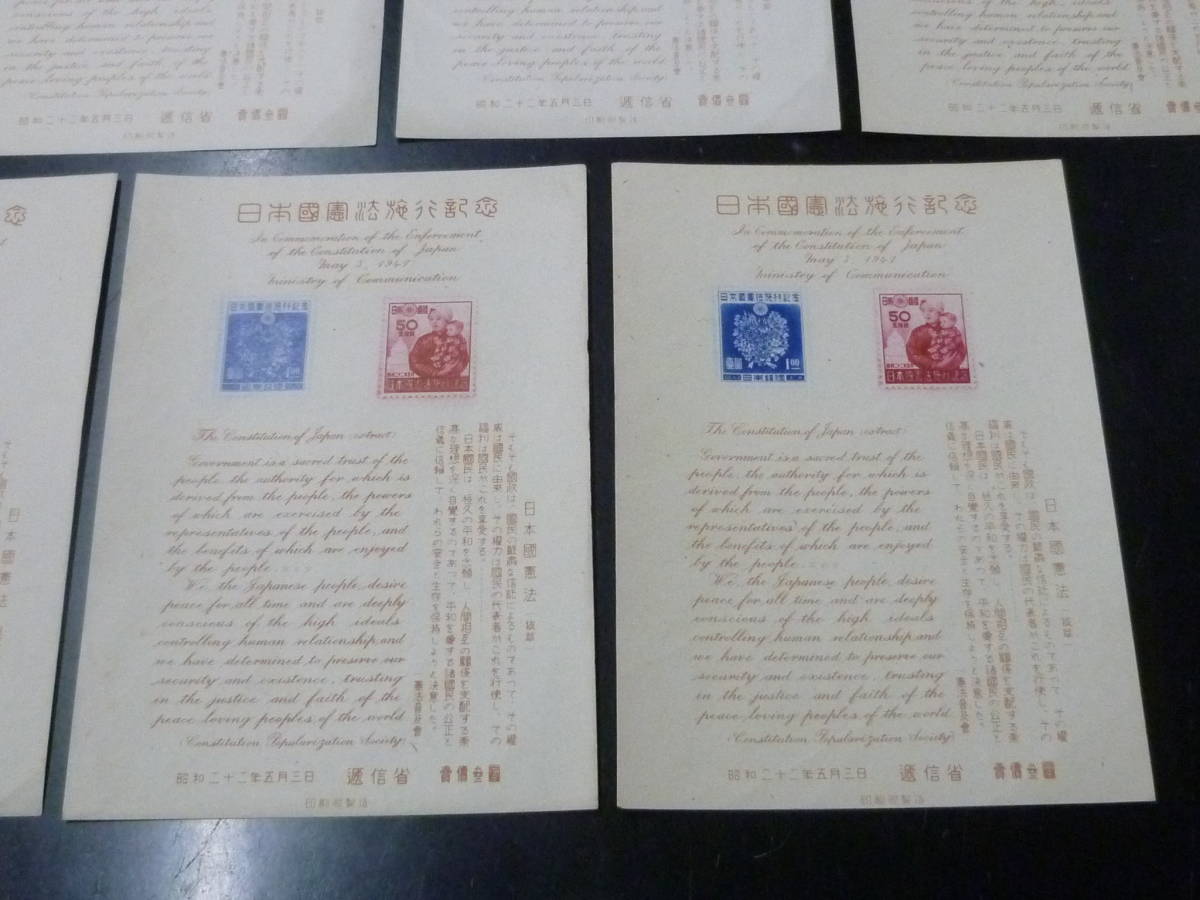 controlling human relationship, and
we have determined to preserve our
security and existence, trusting
in the justice and faith of the
peace loving peoples of the world
(Constitution Popularization Society)
昭和二十二年五月三日 遞信省 賣價叁圓
印刷局製造
controlling human relationship, and
we have determined to preserve our
security and existence, trusting
in the justice and faith of the
peace loving peoples of the world
(Constitution Popularization Society)
昭和二十二年五月三日 遞信省 賣價叁圓
印刷局製造
conscious of the high ideals
controlling human relationship, and
we have determined to preserve our
security and existence, trusting
in the justice and faith of the
peace loving peoples of the world
(Constitution Popularization Society)
昭和二十二年五月三日 遞信省
印刷局製造
念
日本國憲法
日本國憲法施行記念
In Commemoration of the Enforcement
of the Constitution of Japan
May 3, 1947
Ministry of Communication
日本國憲法施行記念
1.00
日本郵便
50
日本國憲法施行記念
The Constitution of Japan (extract)
Government is a sacred trust of the
people, the authority for which is
derived from the people, the powers
of which are exercised by the
representatives of the people, and
the benefits of which are enjoyed
by the people.
We, the Japanese people, desire
peace for all time and are deeply
conscious of the high ideals
controlling human relationship, and
we have determined to preserve our
security and existence, trusting
in the justice and faith of the
peace loving peoples of the world
(Constitution Popularization Society)
日本國憲法（拔萃）
そもそも國政は、國民の嚴肅な信託によるものであつて、その權
威は國民に由來し、その權力は國民の代表者がこれを行使し、その
福利は國民がこれを享受する。
日本國民は、恒久の平和を念願し、人間相互の關係を支配する崇
高な理想を深く自覺するのであつて、平和を愛する諸國民の公正と
信義に信頼して、われらの安全と生存を保持しようと決意した。
憲法普及會
昭和二十二年五月三日 遞信省 賣價叁圓
印刷局製造
日本國憲法施行記念
In Commemoration of the Enforcement
of the Constitution of Japan
May 3, 1947
Ministry of Communication
日本國憲法施行記念
壹圓 1.00
日本郵便
日本郵便
50
日本國憲法施行記念
The Constitution of Japan (extract)
Government is a sacred trust of the
people, the authority for which is
derived from the people, the powers
of which are exercised by the
representatives of the people, and
the benefits of which are enjoyed
by the people.
We, the Japanese people, desire
peace for all time and are deeply
conscious of the high ideals
controlling human relationship, and
we have determined to preserve our
security and existence, trusting
in the justice and faith of the
peace loving peoples of the world
(Constitution Popularization Society)
日本國憲法（拔萃）
そもそも國政は、國民の嚴肅な信託によるものであつて、その權
威は國民に由來し、その權力は國民の代表者がこれを行使し、その
福利は國民がこれを享受する。
日本國民は、恒久の平和を念願し、人間相互の關係を支配する崇
高な理想を深く自覺するのであつて、平和を愛する諸國民の公正と
信義に信頼して、われらの安全と生存を保持しようと決意した。
憲法普及會
昭和二十二年五月三日 遞信省 賣價叁圓
印刷局製造